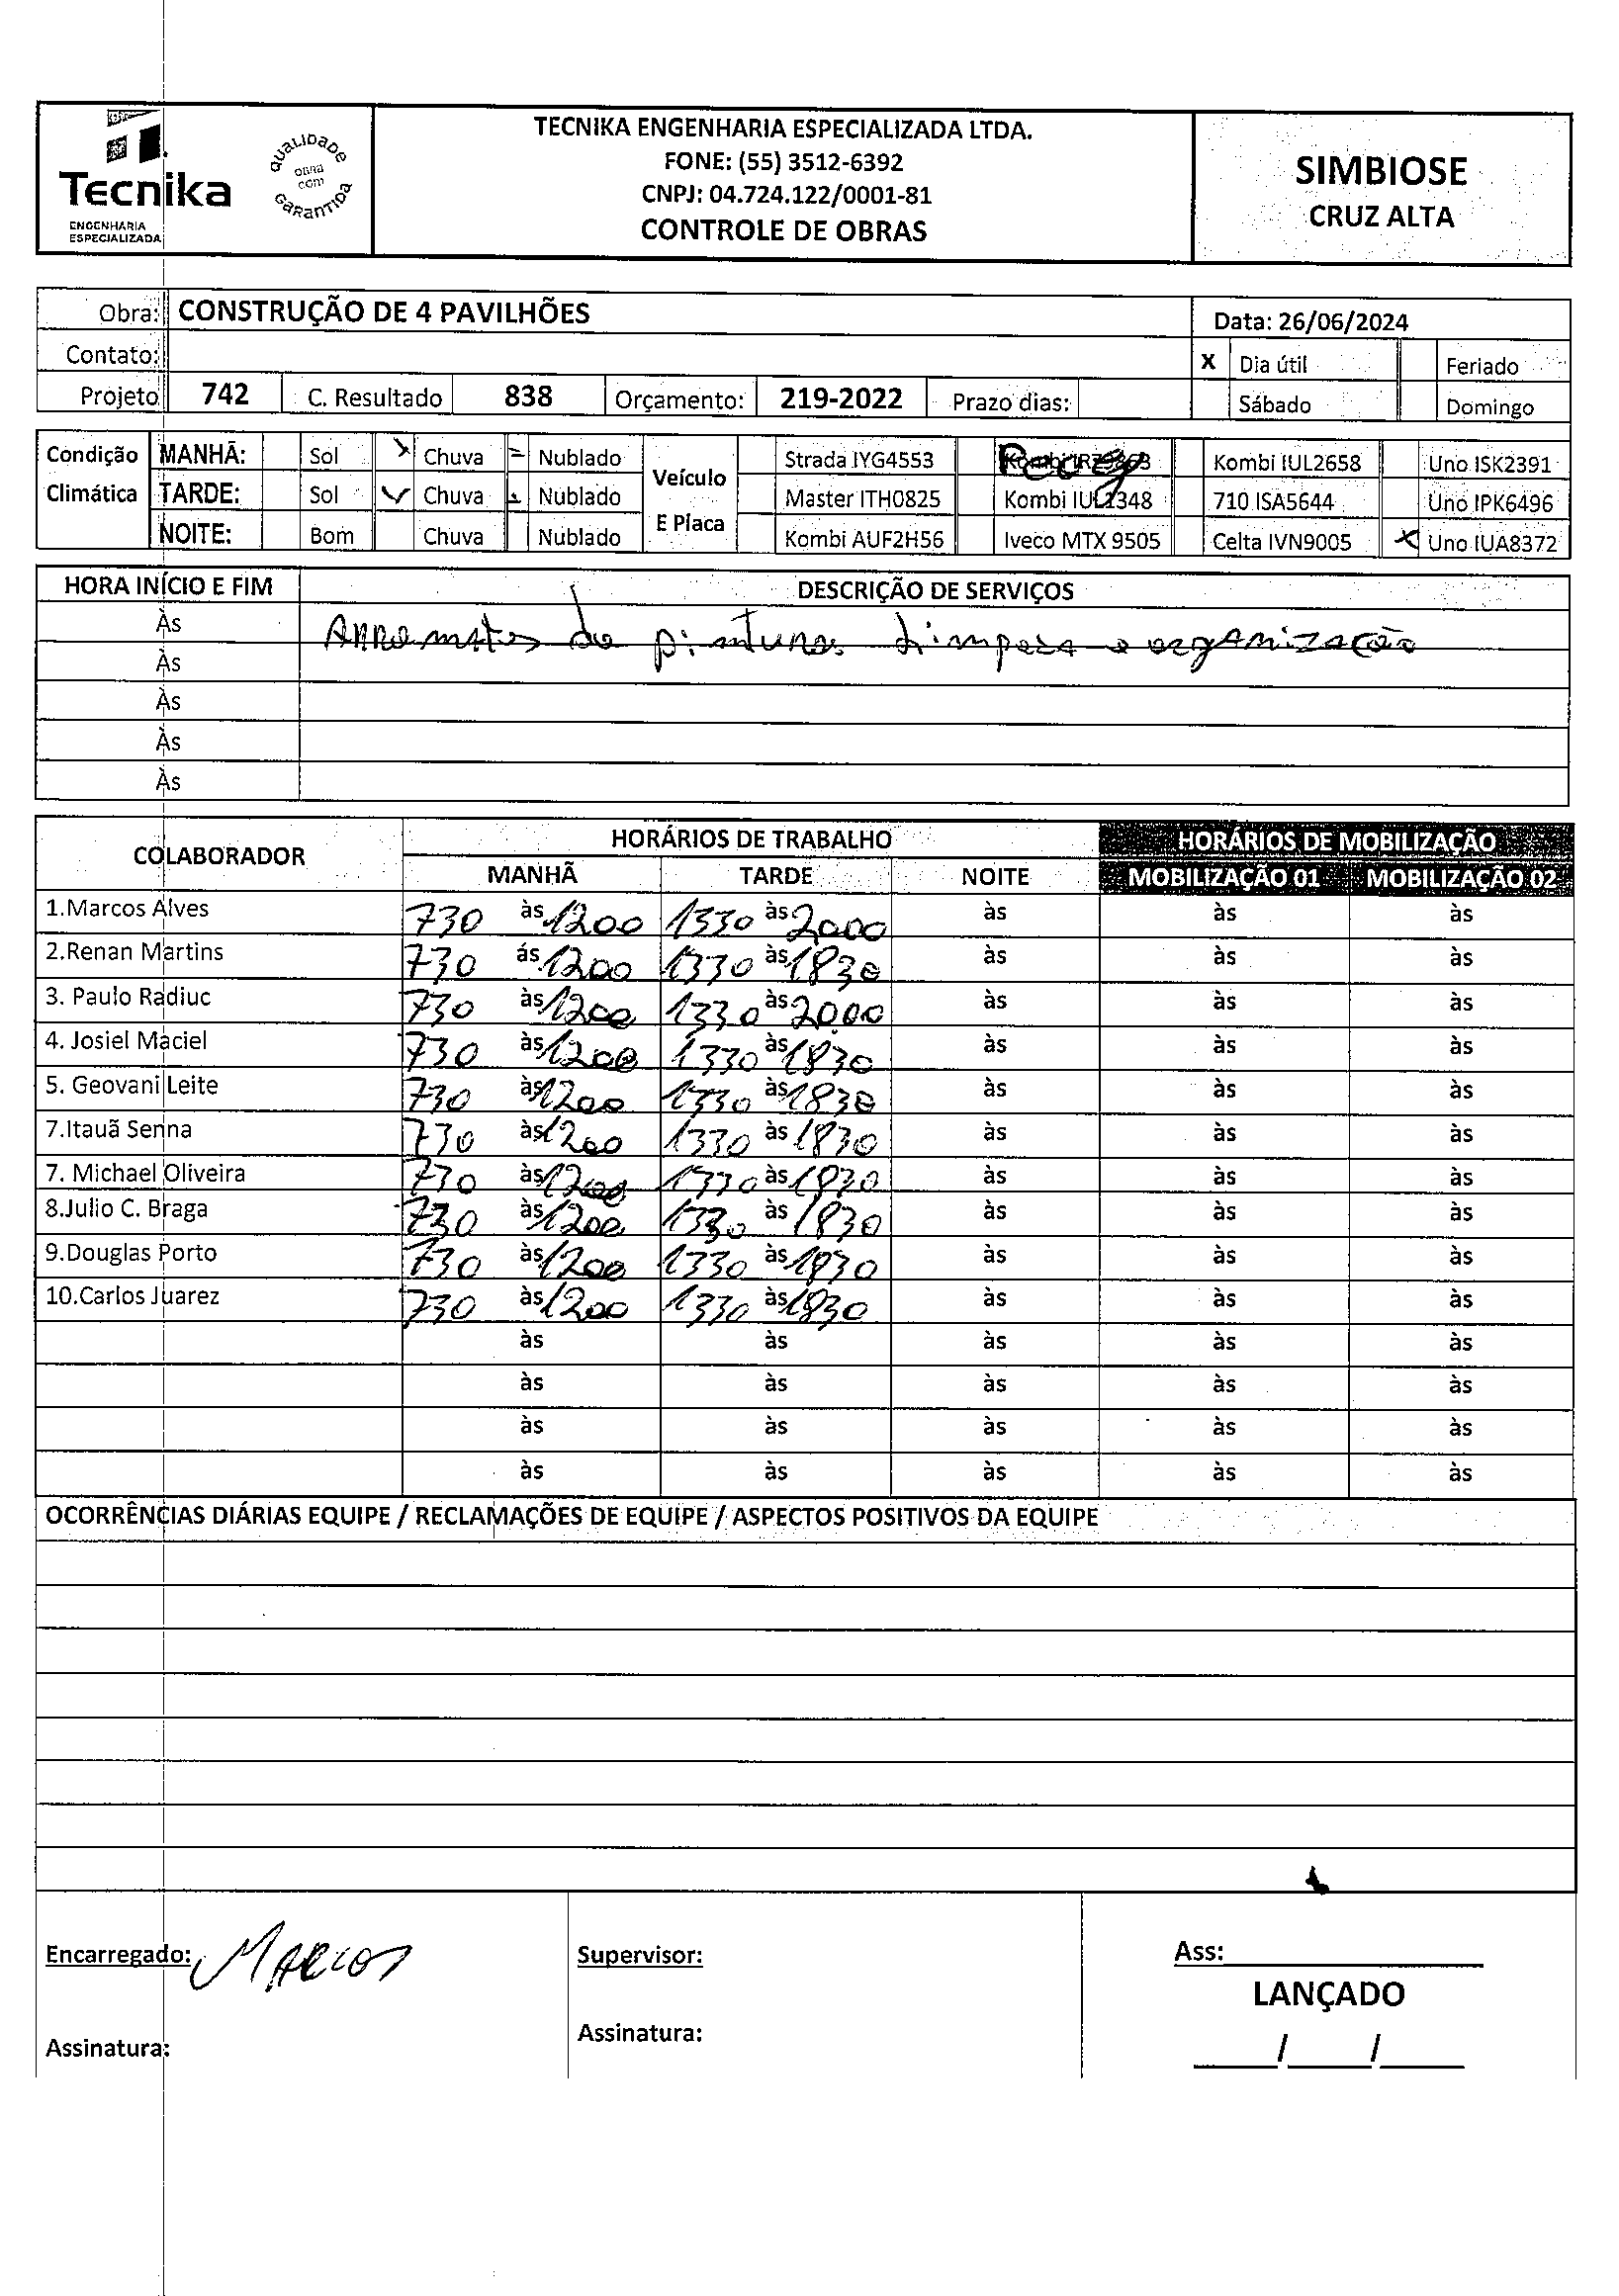 Tecnika
ENGENHARIA
ESPECIALIZADA
QUALIDADE
OBRA
COM
GARANTIDA
TECNIKA ENGENHARIA ESPECIALIZADA LTDA.
FONE: (55) 3512-6392
CNPJ: 04.724.122/0001-81
CONTROLE DE OBRAS
SIMBIOSE
CRUZ ALTA
Obra: CONSTRUÇÃO DE 4 PAVILHÕES Data: 26/06/2024
Contato: X Dia útil Feriado
Projeto 742 C. Resultado 838 Orçamento: 219-2022 Prazo dias: Sábado Domingo
Condição Climática
MANHÃ: Sol Chuva Nublado
TARDE: Sol Chuva Nublado
NOITE: Bom Chuva Nublado
Veículo
E Placa
Strada IYG4553 Kombi IUL2658 Uno ISK2391
Master ITH0825 Kombi IUL1348 710 ISA5644 Uno IPK6496
Kombi AUF2H56 Iveco MTX 9505 Celta IVN9005 X Uno IUA8372
HORA INÍCIO E FIM DESCRIÇÃO DE SERVIÇOS
Às Arremates de pinturas Limpeza e organização
Às
Às
Às
Às
COLABORADOR HORÁRIOS DE TRABALHO HORÁRIOS DE MOBILIZAÇÃO
MANHÃ TARDE NOITE MOBILIZAÇÃO 01 MOBILIZAÇÃO 02
1.Marcos Alves 730 às 1200 1330 às 2000 às às às
2.Renan Martins 730 ás 1200 1330 às 1830 às às às
3. Paulo Radiuc 730 às 1200 1330 às 2000 às às às
4. Josiel Maciel 730 às 1200 1330 às 1830 às às às
5. Geovani Leite 730 às 1200 1330 às 1830 às às às
7.Itauã Senna 730 às 1200 1330 às 1830 às às às
7. Michael Oliveira 730 às 1200 1330 às 1830 às às às
8.Julio C. Braga 730 às 1200 1330 às 1830 às às às
9.Douglas Porto 730 às 1200 1330 às 1830 às às às
10.Carlos Juarez 730 às 1200 1330 às 1830 às às às
às às às às às
às às às às às
às às às às às
às às às às às
OCORRÊNCIAS DIÁRIAS EQUIPE / RECLAMAÇÕES DE EQUIPE / ASPECTOS POSITIVOS DA EQUIPE
Encarregado: MARCOS Supervisor: Ass:
LANÇADO
Assinatura: Assinatura: / /